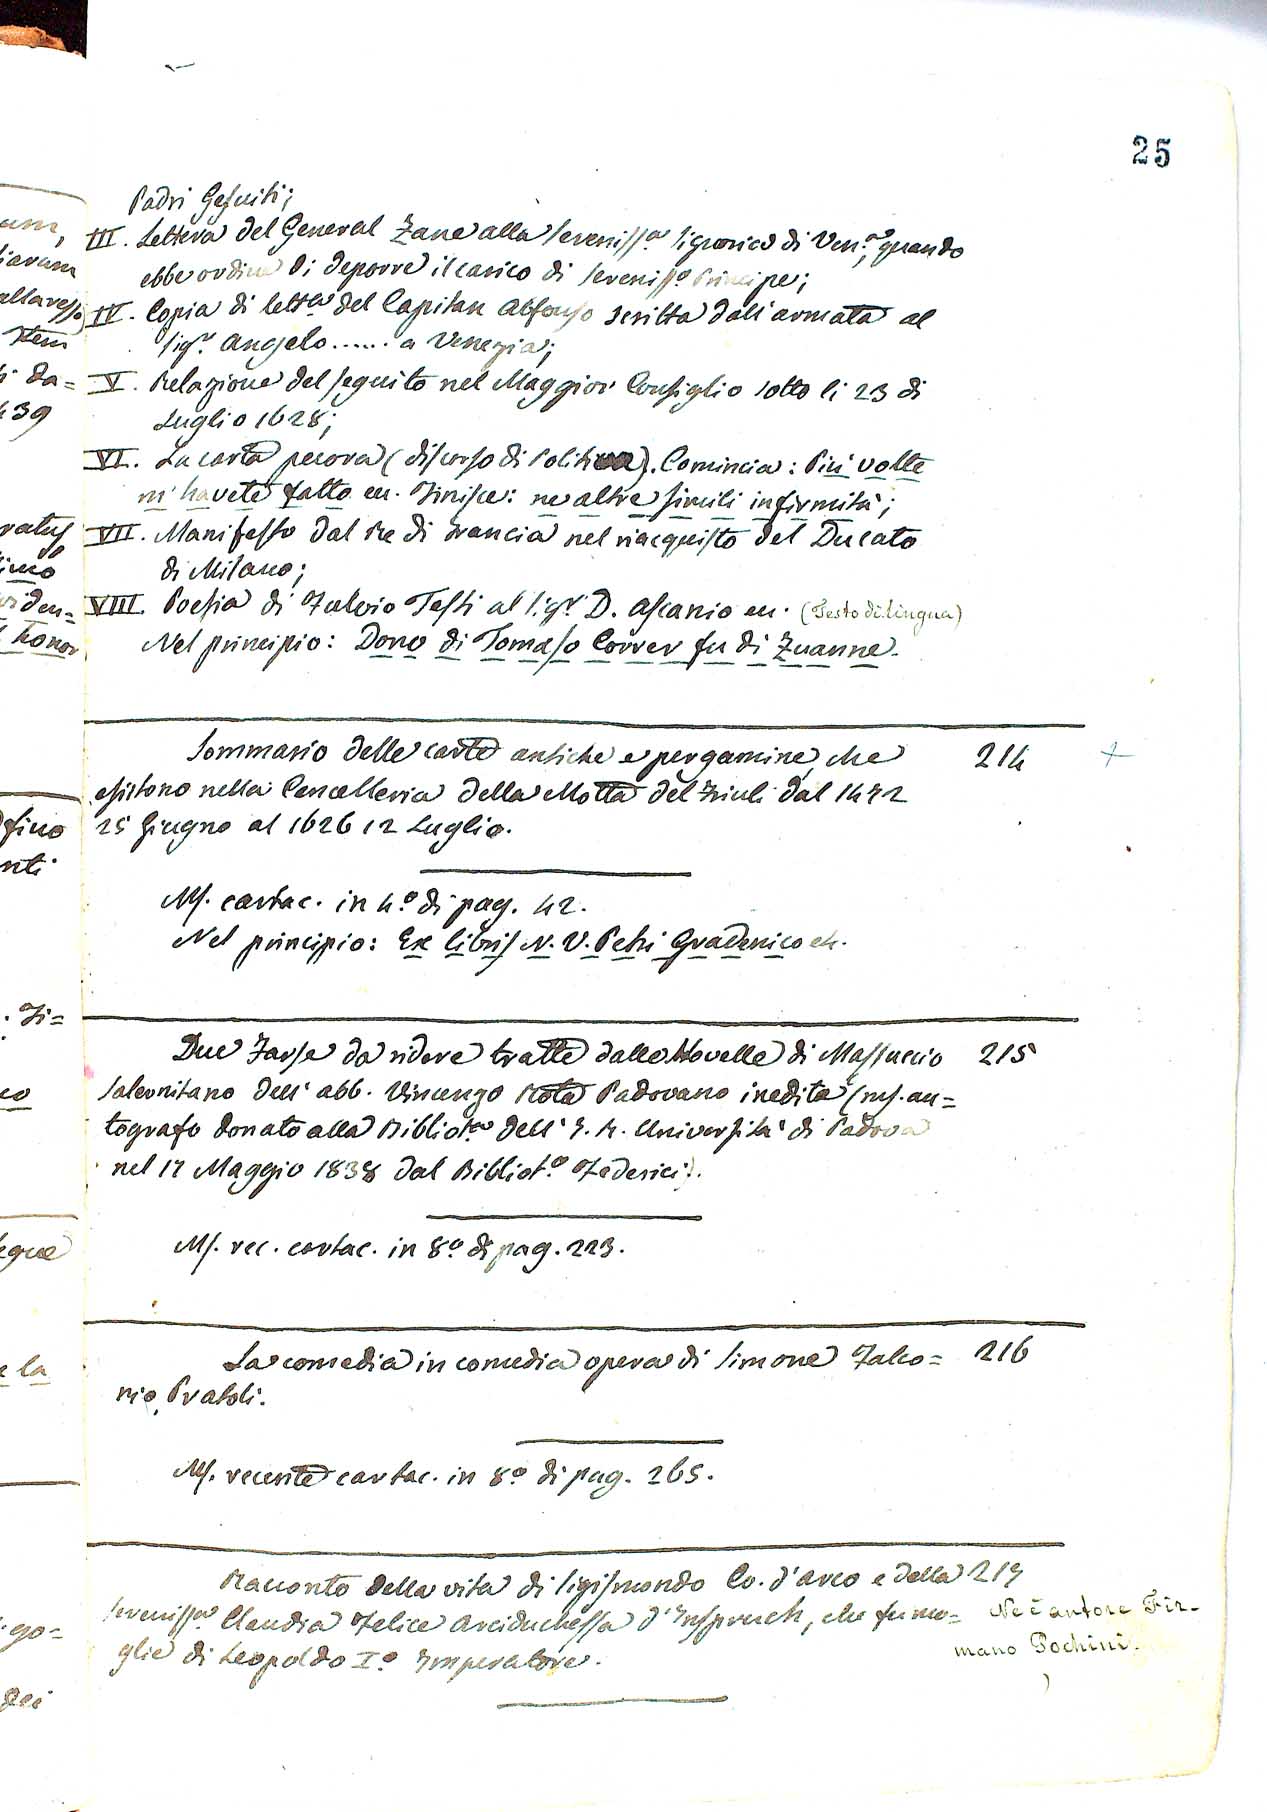 25
Padri Gesuiti;
III. Lettera del General Zane alla Sereniss.ª Signoria di Ven.ª, quando
ebbe ordine di deporre il carico di Sereniss.º Principe;
IV. Copia di lett.ra del Capitan Alfonso scritta dall'armata al
Sig.r Angelo ...... a Venezia;
V. Relazione del seguito nel Maggior Consiglio sotto li 23 di
Luglio 1628;
VI. La carta pecora (discorso di Politica). Comincia: Più volte
m'havete fatto ec. Finisce: ne altre simili infirmità;
VII. Manifesto dal Re di Francia nel riacquisto del Ducato
di Milano;
VIII. Poesia di Fulvio Testi al Sig.r D. Ascanio ec. (Testo di lingua)
Nel principio: Dono di Tomaso Correr fu di Zuanne.
Sommario delle carte antiche e pergamine, che 214
esistono nella Cancelleria della Motta del Friuli dal 1472
25 Giugno al 1626 12 Luglio.
Ms. cartac. in 4.º di pag. 42.
Nel principio: Ex libris N. V. Petri Gradenico ec.
Due Farse da ridere tratte dalle Novelle di Massuccio 215
Salernitano dell'abb. Vincenzo Rota Padovano inedite (ms. au=
tografo donato alla Bibliot.ca dell'I. R. Università di Padova
nel 17 Maggio 1838 dal Bibliot.º Federici).
Ms. rec. cartac. in 8.º di pag. 223.
La comedia in comedia opera di Simone Falco= 216
nio Pratoli.
Ms. recente cartac. in 8.º di pag. 265.
Racconto della vita di Sigismondo Co. d'Arco e della 217
Sereniss.ª Claudia Felice Arciduchessa d'Inspruch, che fu mo=
glie di Leopoldo I.º Imperatore.
Ne è autore Fir-
mano Pochini.